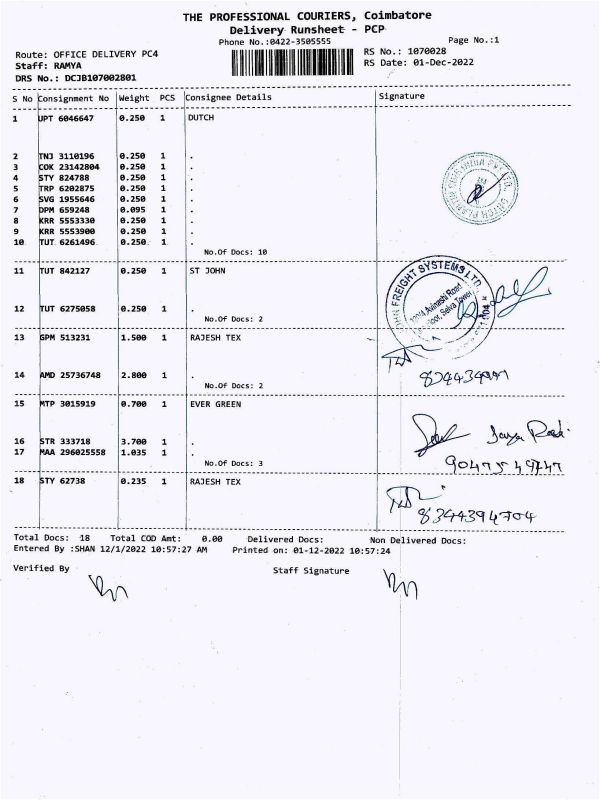 THE PROFESSIONAL COURIERS, Coimbatore
Delivery Runsheet - PCP
Phone No.:0422-3505555
Page No.:1
Route: OFFICE DELIVERY PC4
RS No.: 1070028
Staff: RAMYA
RS Date: 01-Dec-2022
DRS No.: DCJB107002801
S No Consignment No Weight PCS Consignee Details Signature
1 UPT 6046647 0.250 1 DUTCH
2 TNJ 3110196 0.250 1 .
3 COK 23142804 0.250 1 .
4 STY 824788 0.250 1 .
5 TRP 6202875 0.250 1 .
6 SVG 1955646 0.250 1 .
7 DPM 659248 0.095 1 .
8 KRR 5553330 0.250 1 .
9 KRR 5553900 0.250 1 .
10 TUT 6261496 0.250 1 .
No.Of Docs: 10
11 TUT 842127 0.250 1 ST JOHN
FREIGHT SYSTEMS LTD.
Avinashi Road
Floor, Selva Tower
12 TUT 6275058 0.250 1 .
No.Of Docs: 2
13 GPM 513231 1.500 1 RAJESH TEX
14 AMD 25736748 2.800 1 .
No.Of Docs: 2
15 MTP 3015919 0.700 1 EVER GREEN
16 STR 333718 3.700 1 .
17 MAA 296025558 1.035 1 .
No.Of Docs: 3
18 STY 62738 0.235 1 RAJESH TEX
8344394704
Total Docs: 18 Total COD Amt: 0.00 Delivered Docs: Non Delivered Docs:
Entered By :SHAN 12/1/2022 10:57:27 AM Printed on: 01-12-2022 10:57:24
Verified By
Staff Signature